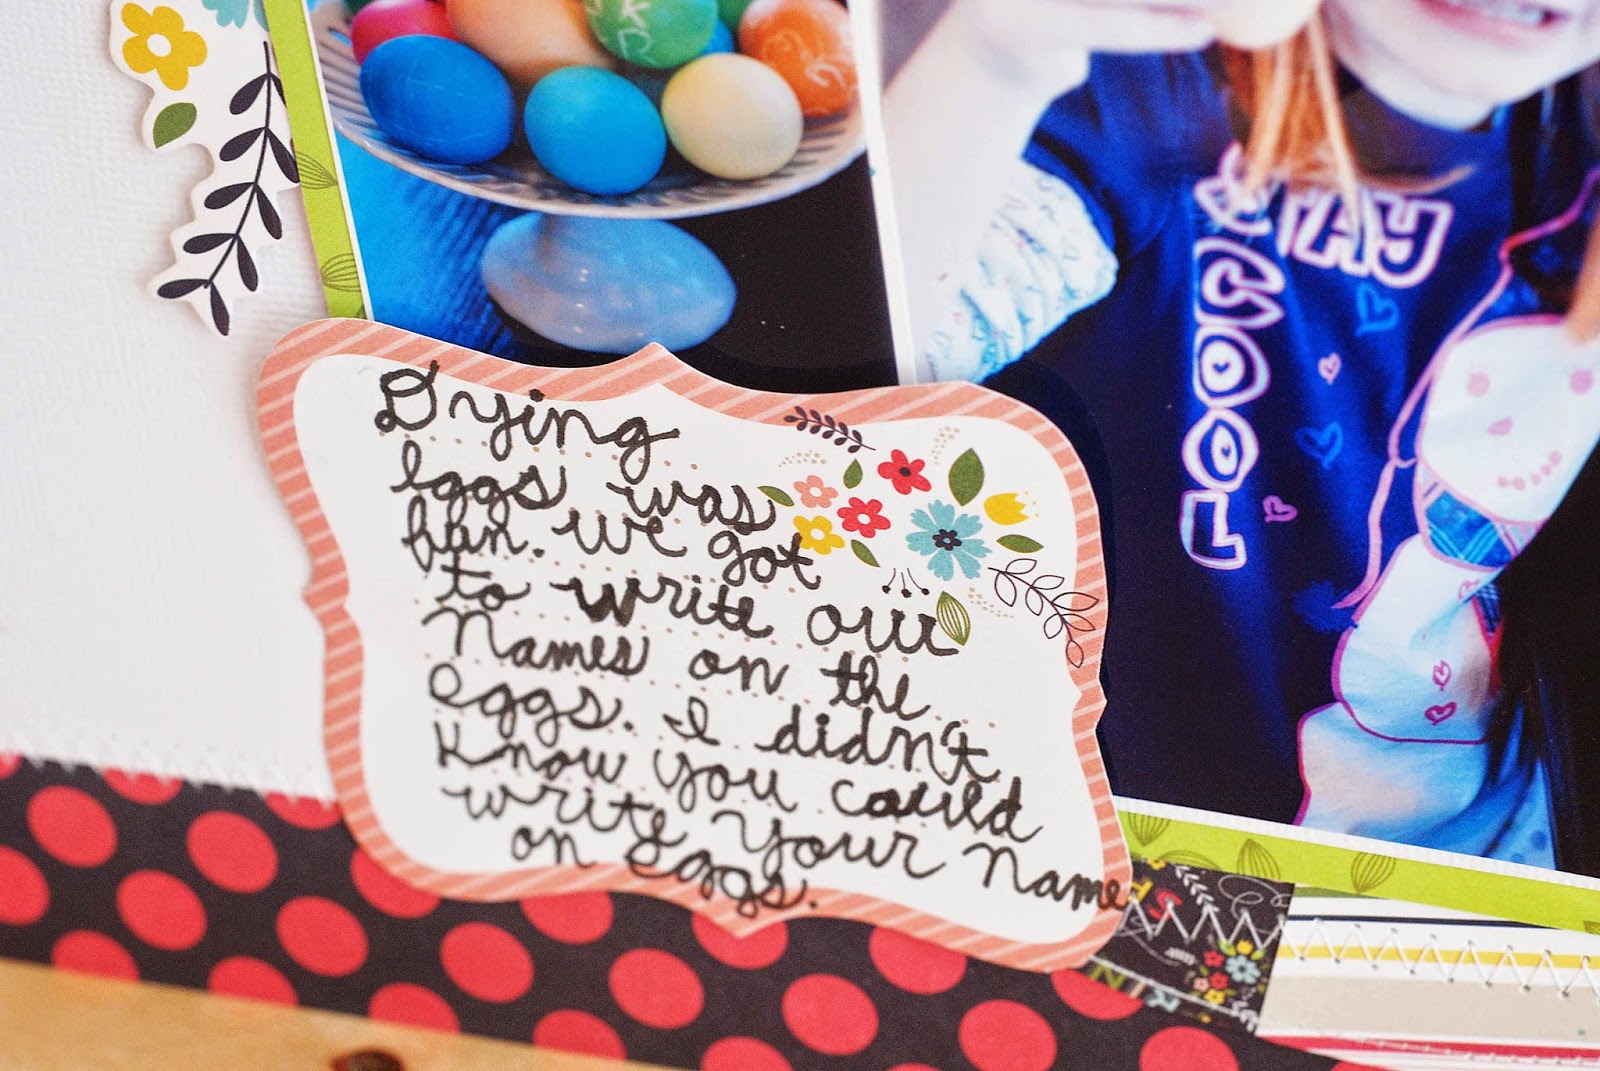 Dying
Eggs was
fun. We got
to write our
Names on the
eggs. I didn't
know you could
write your name
on eggs.
STAY
COOL